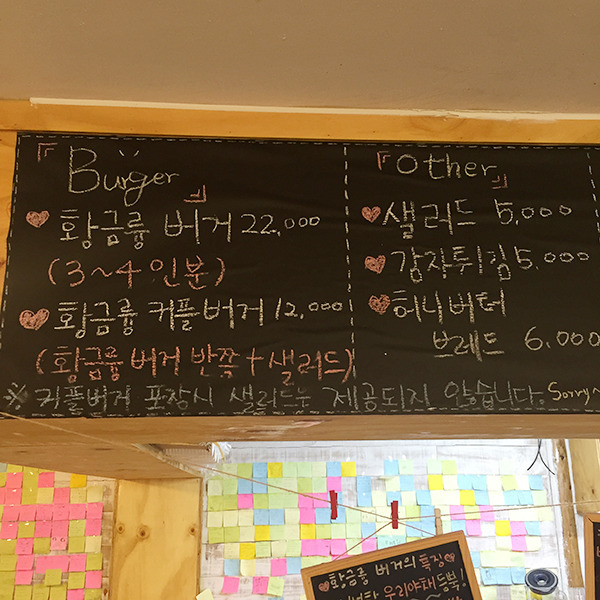 『Burger』
황금륭 버거 22,000
(3~4 인분)
황금륭 커플버거 12,000
(황금륭 버거 반쪽 + 샐러드)
『Other』
샐러드 5,000
감자튀김 5,000
허니버터
브레드 6,000
※ 커플버거 포장시 샐러드는 제공되지 않습니다. Sorry~
황금륭 버거의 특징
우리야채듬뿍!